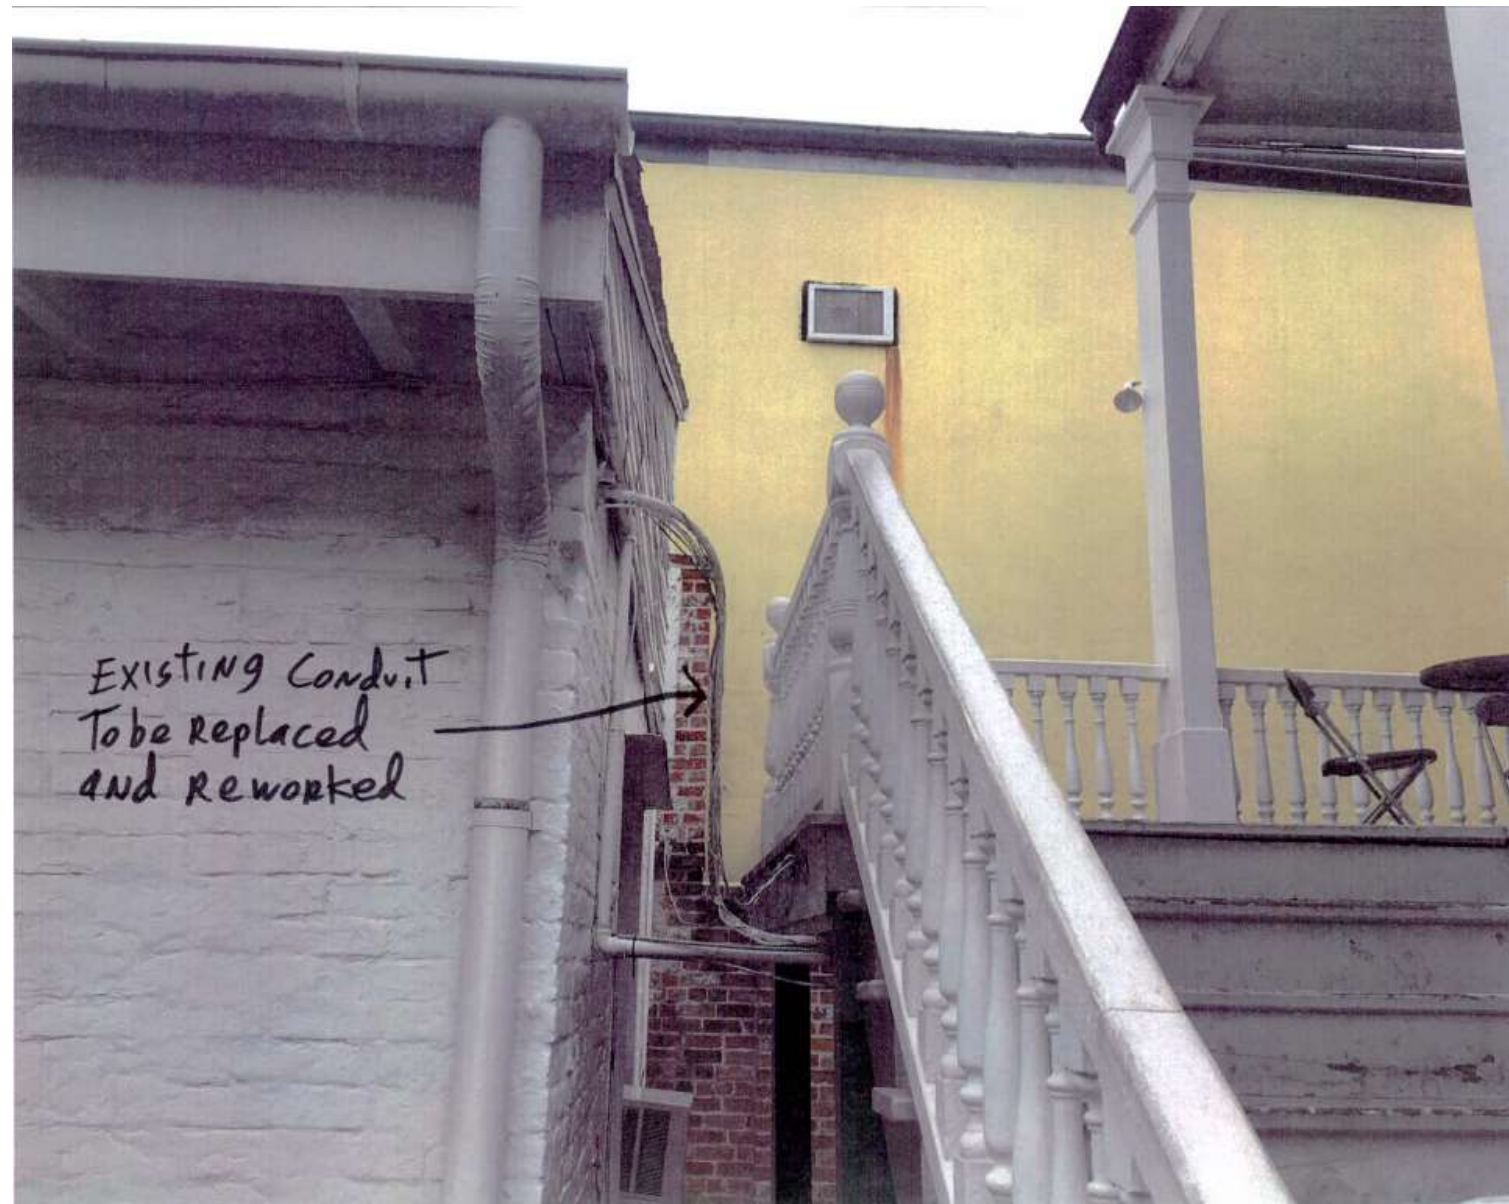 EXISTING CONDUIT
To be Replaced
AND REWORKED